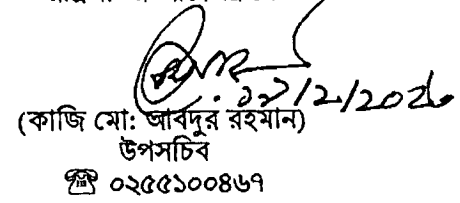 ১৯/2/2026
(কাজি মো: আবদুর রহমান)
উপসচিব
☎ ০২৫৫১০০৪৬৭